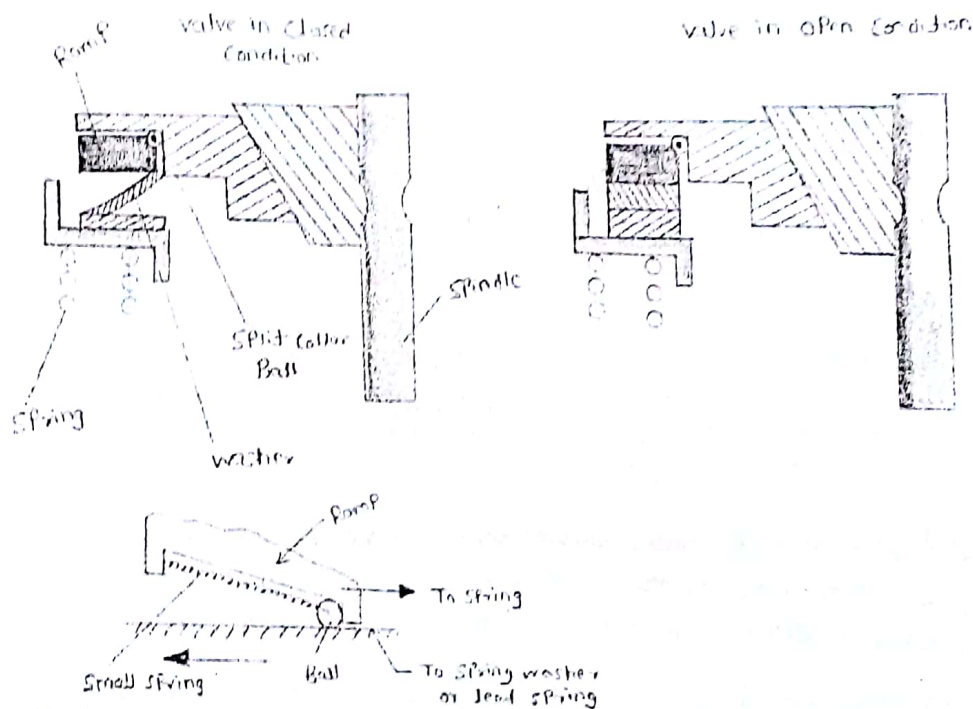 Ramp
valve in Closed
Condition
valve in open condition
Spindle
Split Collar
Ball
Spring
washer
Ramp
To spring
Small spring
Ball
To spring washer
or lead spring